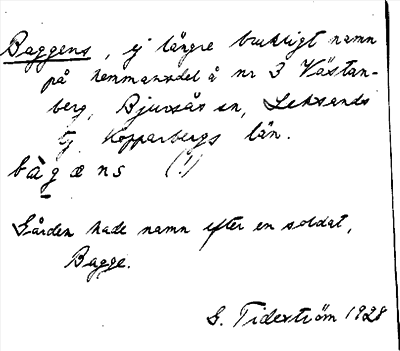 Baggens, ej längre brukligt namn
på hemmansdel å nr 3 Västan-
berg, Bjursås sn, Leksands
tj Kopparbergs län.
bàgæns (!)
Gården hade namn efter en soldat,
Bagge.
G. Tiderström 1928